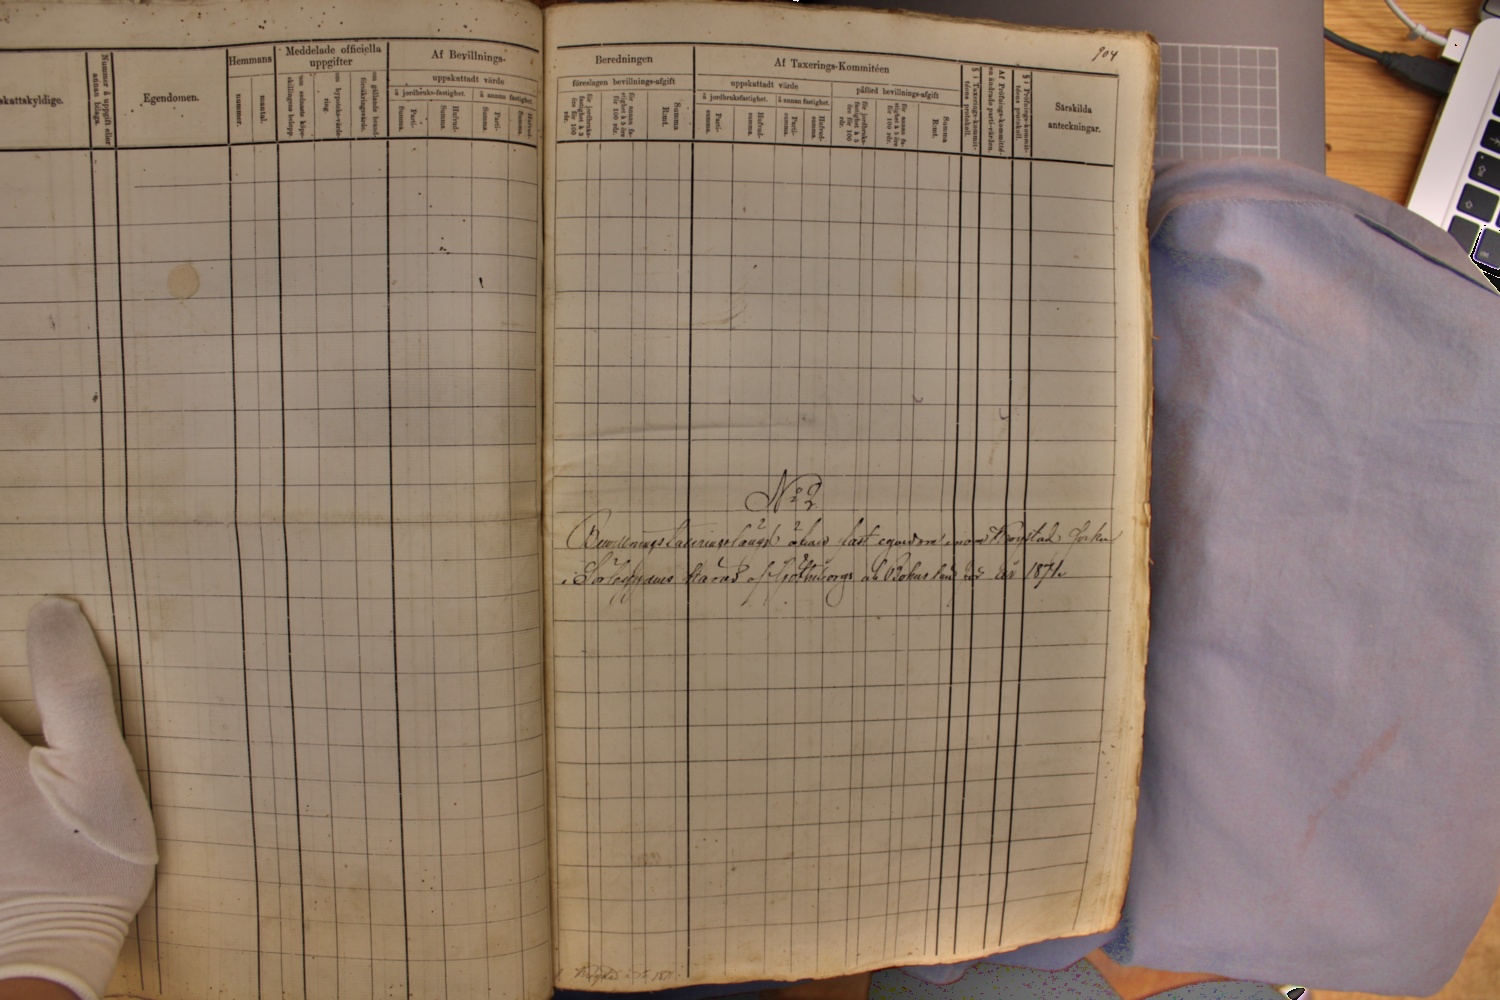 904
skattskyldige.
Nummer å uppgift eller annan bilaga.
Egendomen.
Hemmans
nummer.
mantal.
Meddelade officiella uppgifter
om senaste köpeskillingens belopp
om hypoteks-värdering
om gällande brandförsäkringsvärde.
Af Bevillnings-
uppskattadt värde
å jordbruks-fastighet.
å annan fastighet.
Parti-Summa.
Hufvud-Summa.
Parti-Summa.
Hufvud-Summa.
Beredningen
föreslagen bevillnings-afgift
för jordbruks-fastighet à 3 öre för 100 rdr.
för annan fastighet à 5 öre för 100 rdr.
Summa R:mt.
Af Taxerings-Kommitéen
uppskattadt värde
å jordbruksfastighet.
å annan fastighet.
Parti-summa.
Hufvud-summa.
Parti-summa.
Hufvud-summa.
påförd bevillnings-afgift
för jordbruks-fastighet à 3 öre för 100 rdr.
för annan fastighet à 5 öre för 100 rdr.
Summa R:mt.
§ i Taxerings-kommitténs protokoll.
Af Pröfnings-kommittéen ändrade parti-värden.
§ i Pröfnings-kommitténs protokoll.
Särskilda anteckningar.
No 2
Bevillningstaxeringslängd öfver fast egendom inom Socken
i Härad af Götheborgs och Bohus län för år 1871.
1871